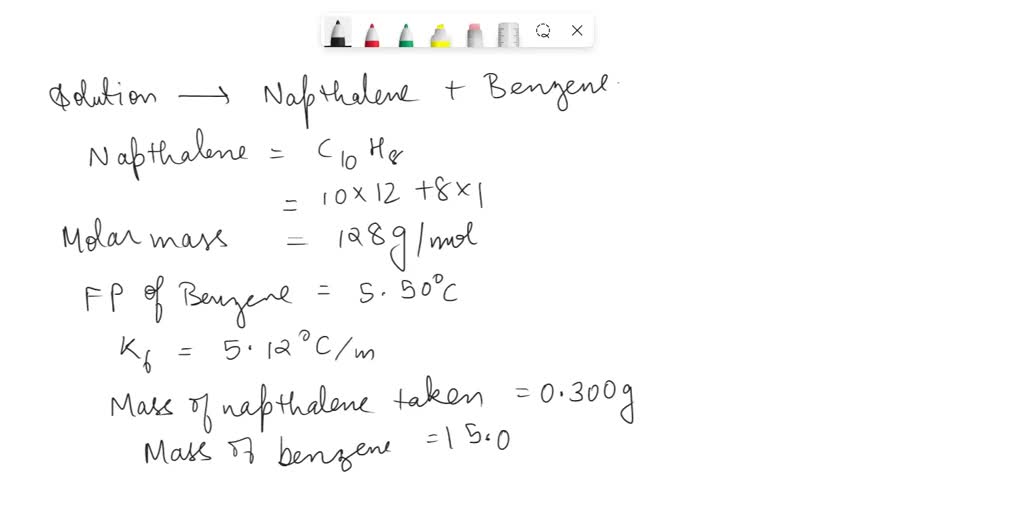 Solution → Napthalene + Benzene.
Napthalene = C10 H8
= 10 × 12 + 8 × 1
Molar mass = 128 g/mol
FP of Benzene = 5.50°C
Kf = 5.12 °C/m
Mass of napthalene taken = 0.300g
Mass of benzene = 15.0